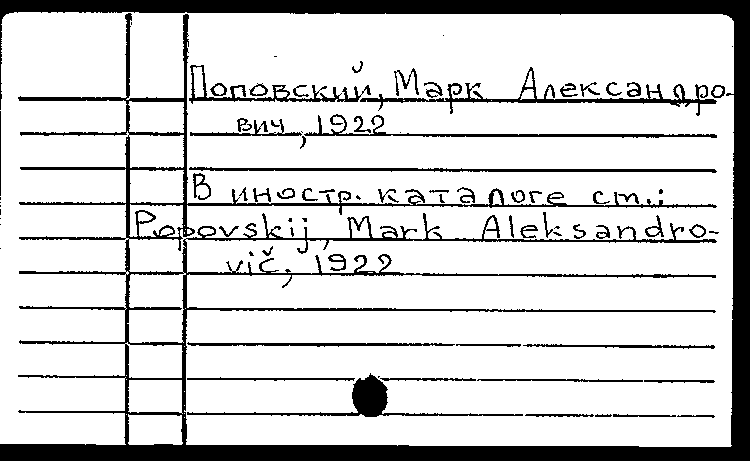 Поповский, Марк Александро-
вич, 1922
В иностр. каталоге см.:
Popovskij, Mark Aleksandro-
vič, 1922